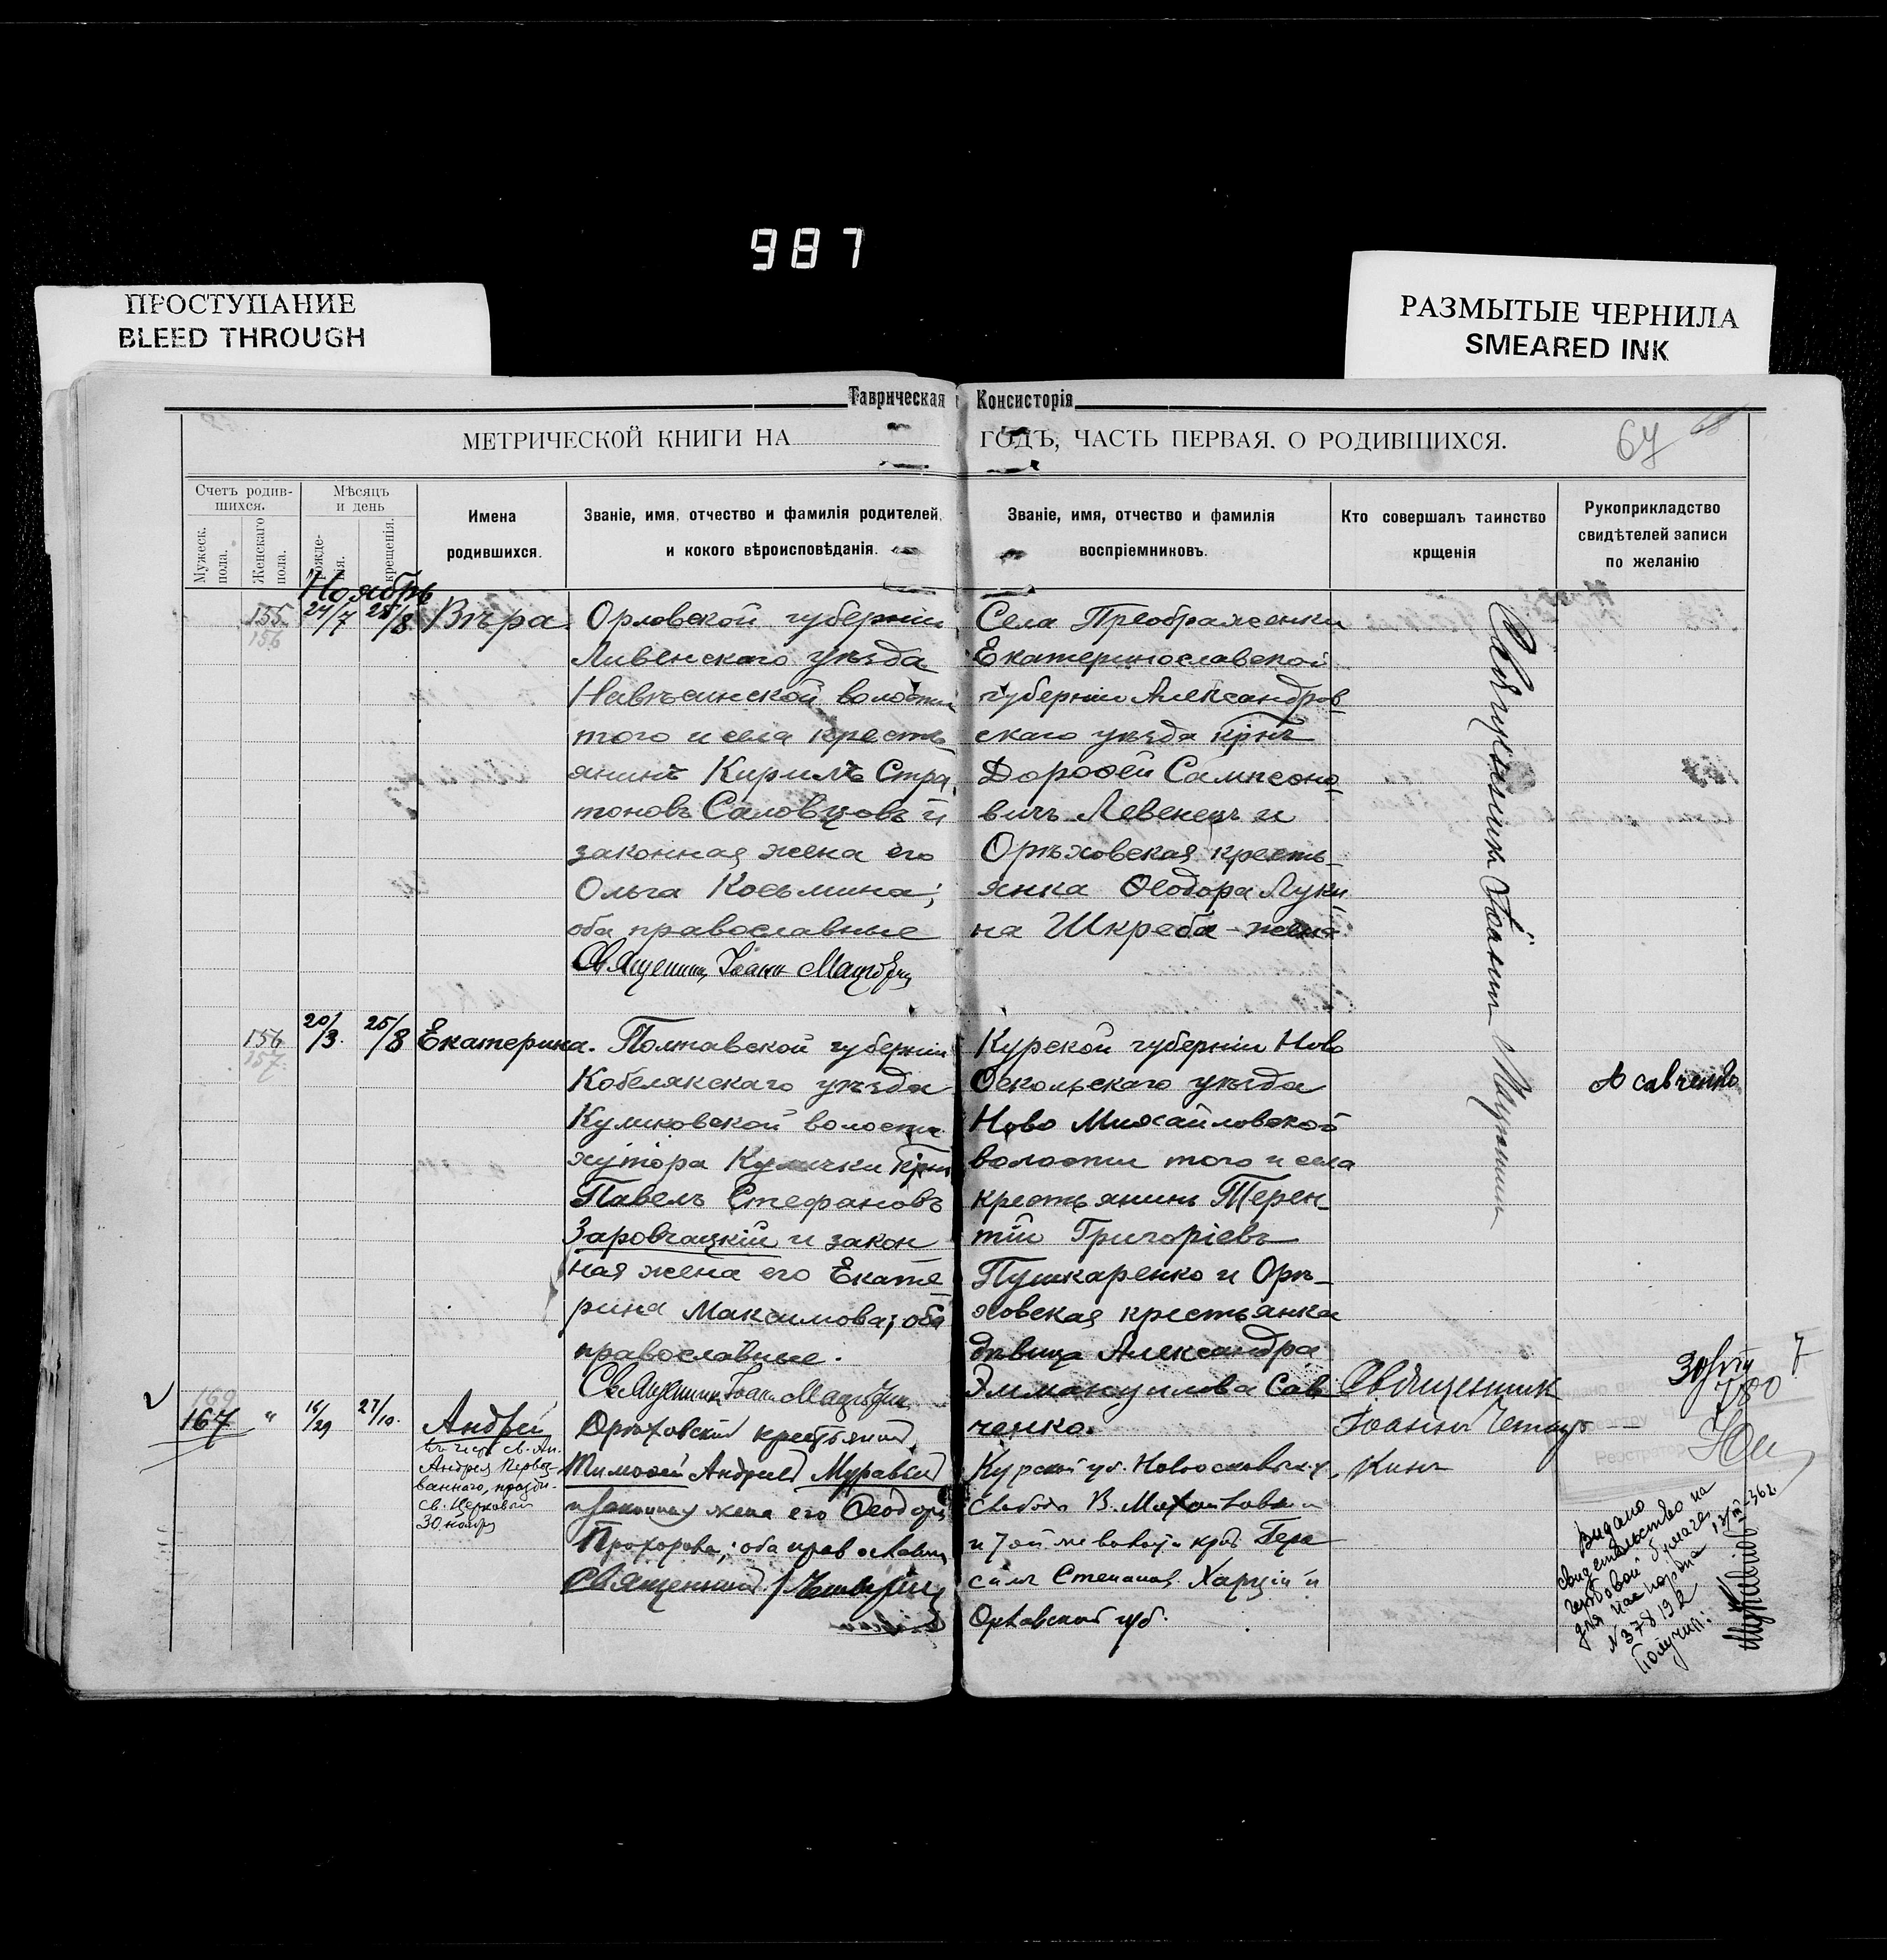 987
ПРОСТУПАНИЕ
BLEED THROUGH
РАЗМЫТЫЕ ЧЕРНИЛА
SMEARED INK
Таврическая Консисторія
МЕТРИЧЕСКОЙ КНИГИ НА ГОДЪ, ЧАСТЬ ПЕРВАЯ. О РОДИВШИХСЯ.
67
Счетъ родив-
шихся.
Мужеск.
пола.
Женскаго
пола.
Мѣсяцъ
и день
рожде-
ія.
крещенія.
Имена
родившихся.
Званіе, имя, отчество и фамилія родителей,
и кокого вѣроисповѣданія.
Званіе, имя, отчество и фамилія
воспріемниковъ.
Кто совершалъ таинство
крщенія
Рукоприкладство
свидѣтелей записи
по желанію
Ноябрь
155.
156
24/7
25/8
Вѣра.
Орловской губерніи
Ливенскаго уѣзда
волости
того и села кресть
янинъ Кирилъ Стра
тоновъ Саловцовъ и
законная жена его
Ольга Косьмина;
оба православные
Священникъ Іоаннъ
Села Преображенки
Екатеринославской
губерніи Александров
скаго уѣзда крнъ
Дорофей Сампсоно
вичъ Левенецъ и
Орѣховская кресть-
янка Ѳеодора Луки
на Шкреба - жена
Священникъ Іоаннъ
156
157.
20/3.
25/8
Екатерина.
Полтавской губерніи
Кобелякскаго уѣзда
Куликовской волости
хутора Кулички крнъ
Павелъ Стефановъ
Заровчацкій и закон
ная жена его Екате
рина Максимова; оба
православные.
Священникъ Іоаннъ
Курской губерніи Ново
Оскольскаго уѣзда
Ново Михайловской
волости того и села
крестьянинъ Терен-
тій Григоріевъ
Пушкаренко и Орѣ-
ховская крестьянка
дѣвица Александра
Эммануилова Сав
ченко.
А Савченко
160
167
"
16/29
27/10.
Андрей
въ честь св. ап.
Андрея Первоз-
ваннаго, праздн.
св. Церковью
30 ноября
Орѣховскій крестьянинъ
Тимофей Андреевъ Муравьевъ
и законная жена его Ѳеодора
Прохорова; оба православны
Священникъ
Курской губ.
слободы В. Михайловки
и той же волости крест. Гера
симъ Степановъ Харцій и
Орловской губ.
Священникъ
Іоаннъ
780
7
Выдано
свидетельство на
гербовой бумаге
для паспорта
N 37819
Получил: